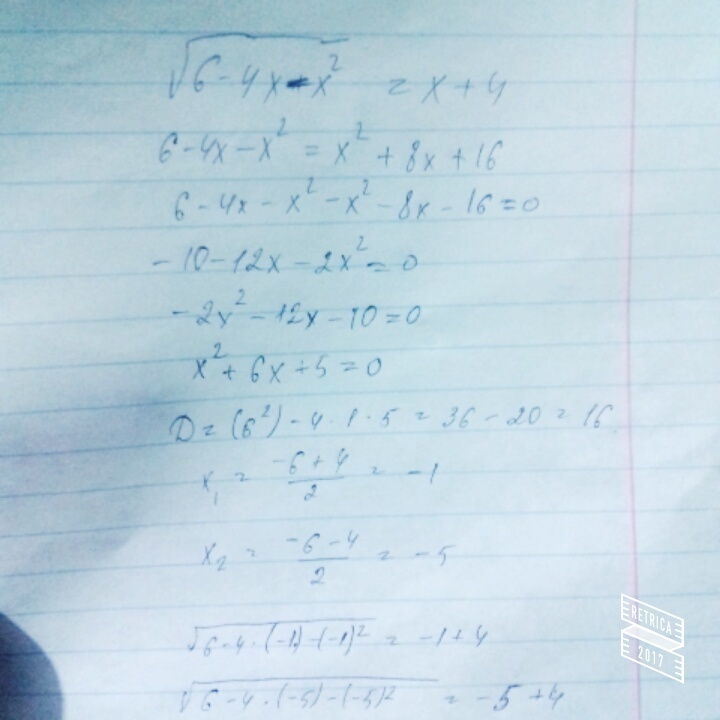 √6-4x-x² = x+4
6-4x-x² = x²+8x+16
6-4x-x²-x²-8x-16=0
-10-12x-2x²=0
-2x²-12x-10=0
x²+6x+5=0
D=(6²)-4·1·5=36-20=16.
x₁ = -6+4/2 = -1
x₂ = -6-4/2 = -5
√6-4·(-1)-(-1)² = -1+4
√6-4·(-5)-(-5)² = -5+4
RETRICA
2017